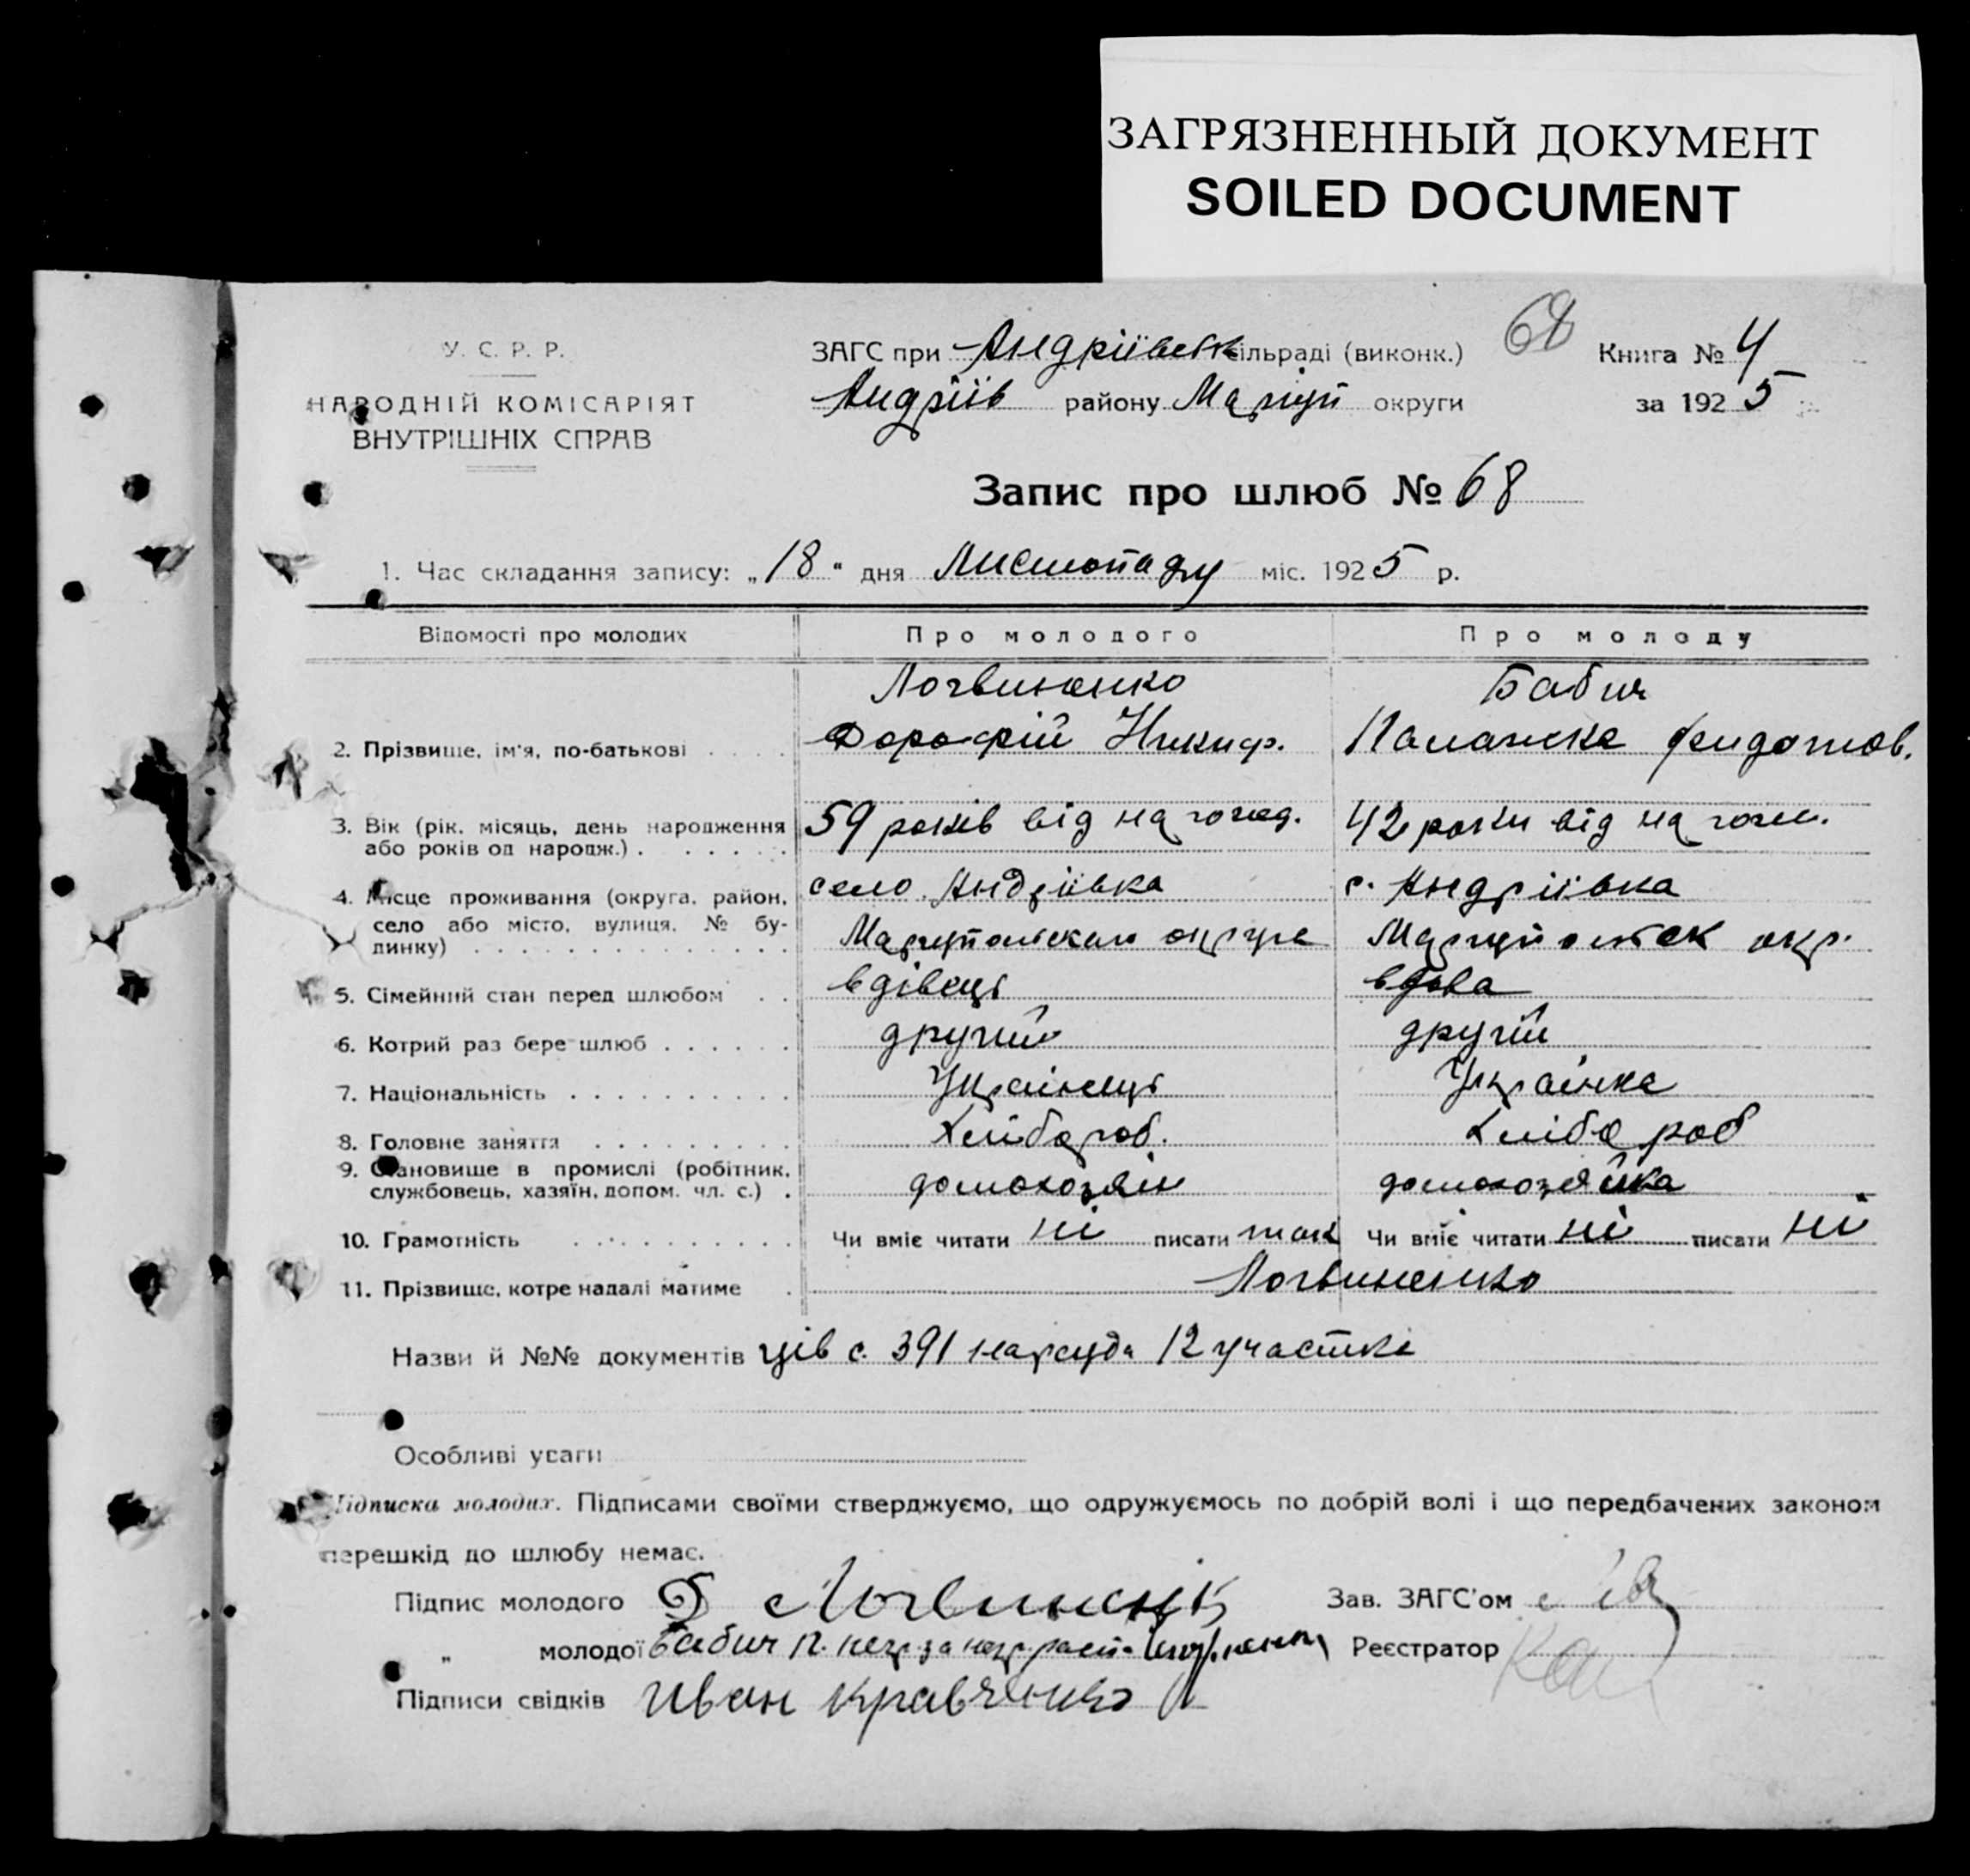 ЗАГРЯЗНЕННЫЙ ДОКУМЕНТ
SOILED DOCUMENT
У. С. Р. Р.
НАРОДНІЙ КОМІСАРІЯТ
ВНУТРІШНІХ СПРАВ
ЗАГС при Андріївськ сільраді (виконк.)
Андріїв району Маріуп округи
68
Книга № 4
за 1925
Запис про шлюб № 68
1. Час складання запису: „18“ дня Листопаду міс. 1925 р.
Відомості про молодих Про молодого Про молоду
Логвиненко Бабич
2. Прізвище, ім'я, по-батькові . . . . Дорофій Никиф. Паланека Федотов.
3. Вік (рік, місяць, день народження 59 років від 42 роки від
або років од народж.) . . . . . .
4. Місце проживання (округа, район, село Андріївка с. Андріївка
село або місто, вулиця, № бу-
динку) . . . . . . . . . . . . . . Маріупольскои округи Маріупольск окр.
5. Сімейний стан перед шлюбом . . вдівець вдова
6. Котрий раз бере шлюб . . . . . . другий другій
7. Національність . . . . . . . . . . Українець Українка
8. Головне заняття . . . . . . . . . Хлібороб. Хлібороб
9. Становище в промислі (робітник,
службовець, хазяїн, допом. чл. с.) . домохозяін домохозяйка
10. Грамотність . . . . . . . . . . Чи вміє читати ні писати так Чи вміє читати ні писати ні
11. Прізвище, котре надалі матиме . Логвиненко
Назви й №№ документів с. 391 нарсуда 12 участка
Особливі уваги
Підписка молодих. Підписами своїми стверджуємо, що одружуємось по добрій волі і що передбачених законом
перешкід до шлюбу немає.
Підпис молодого Д Логвиненк Зав. ЗАГС'ом
„ молодої Бабич П. негр. за негр. расп. Реєстратор
Підписи свідків Иван Кравченко